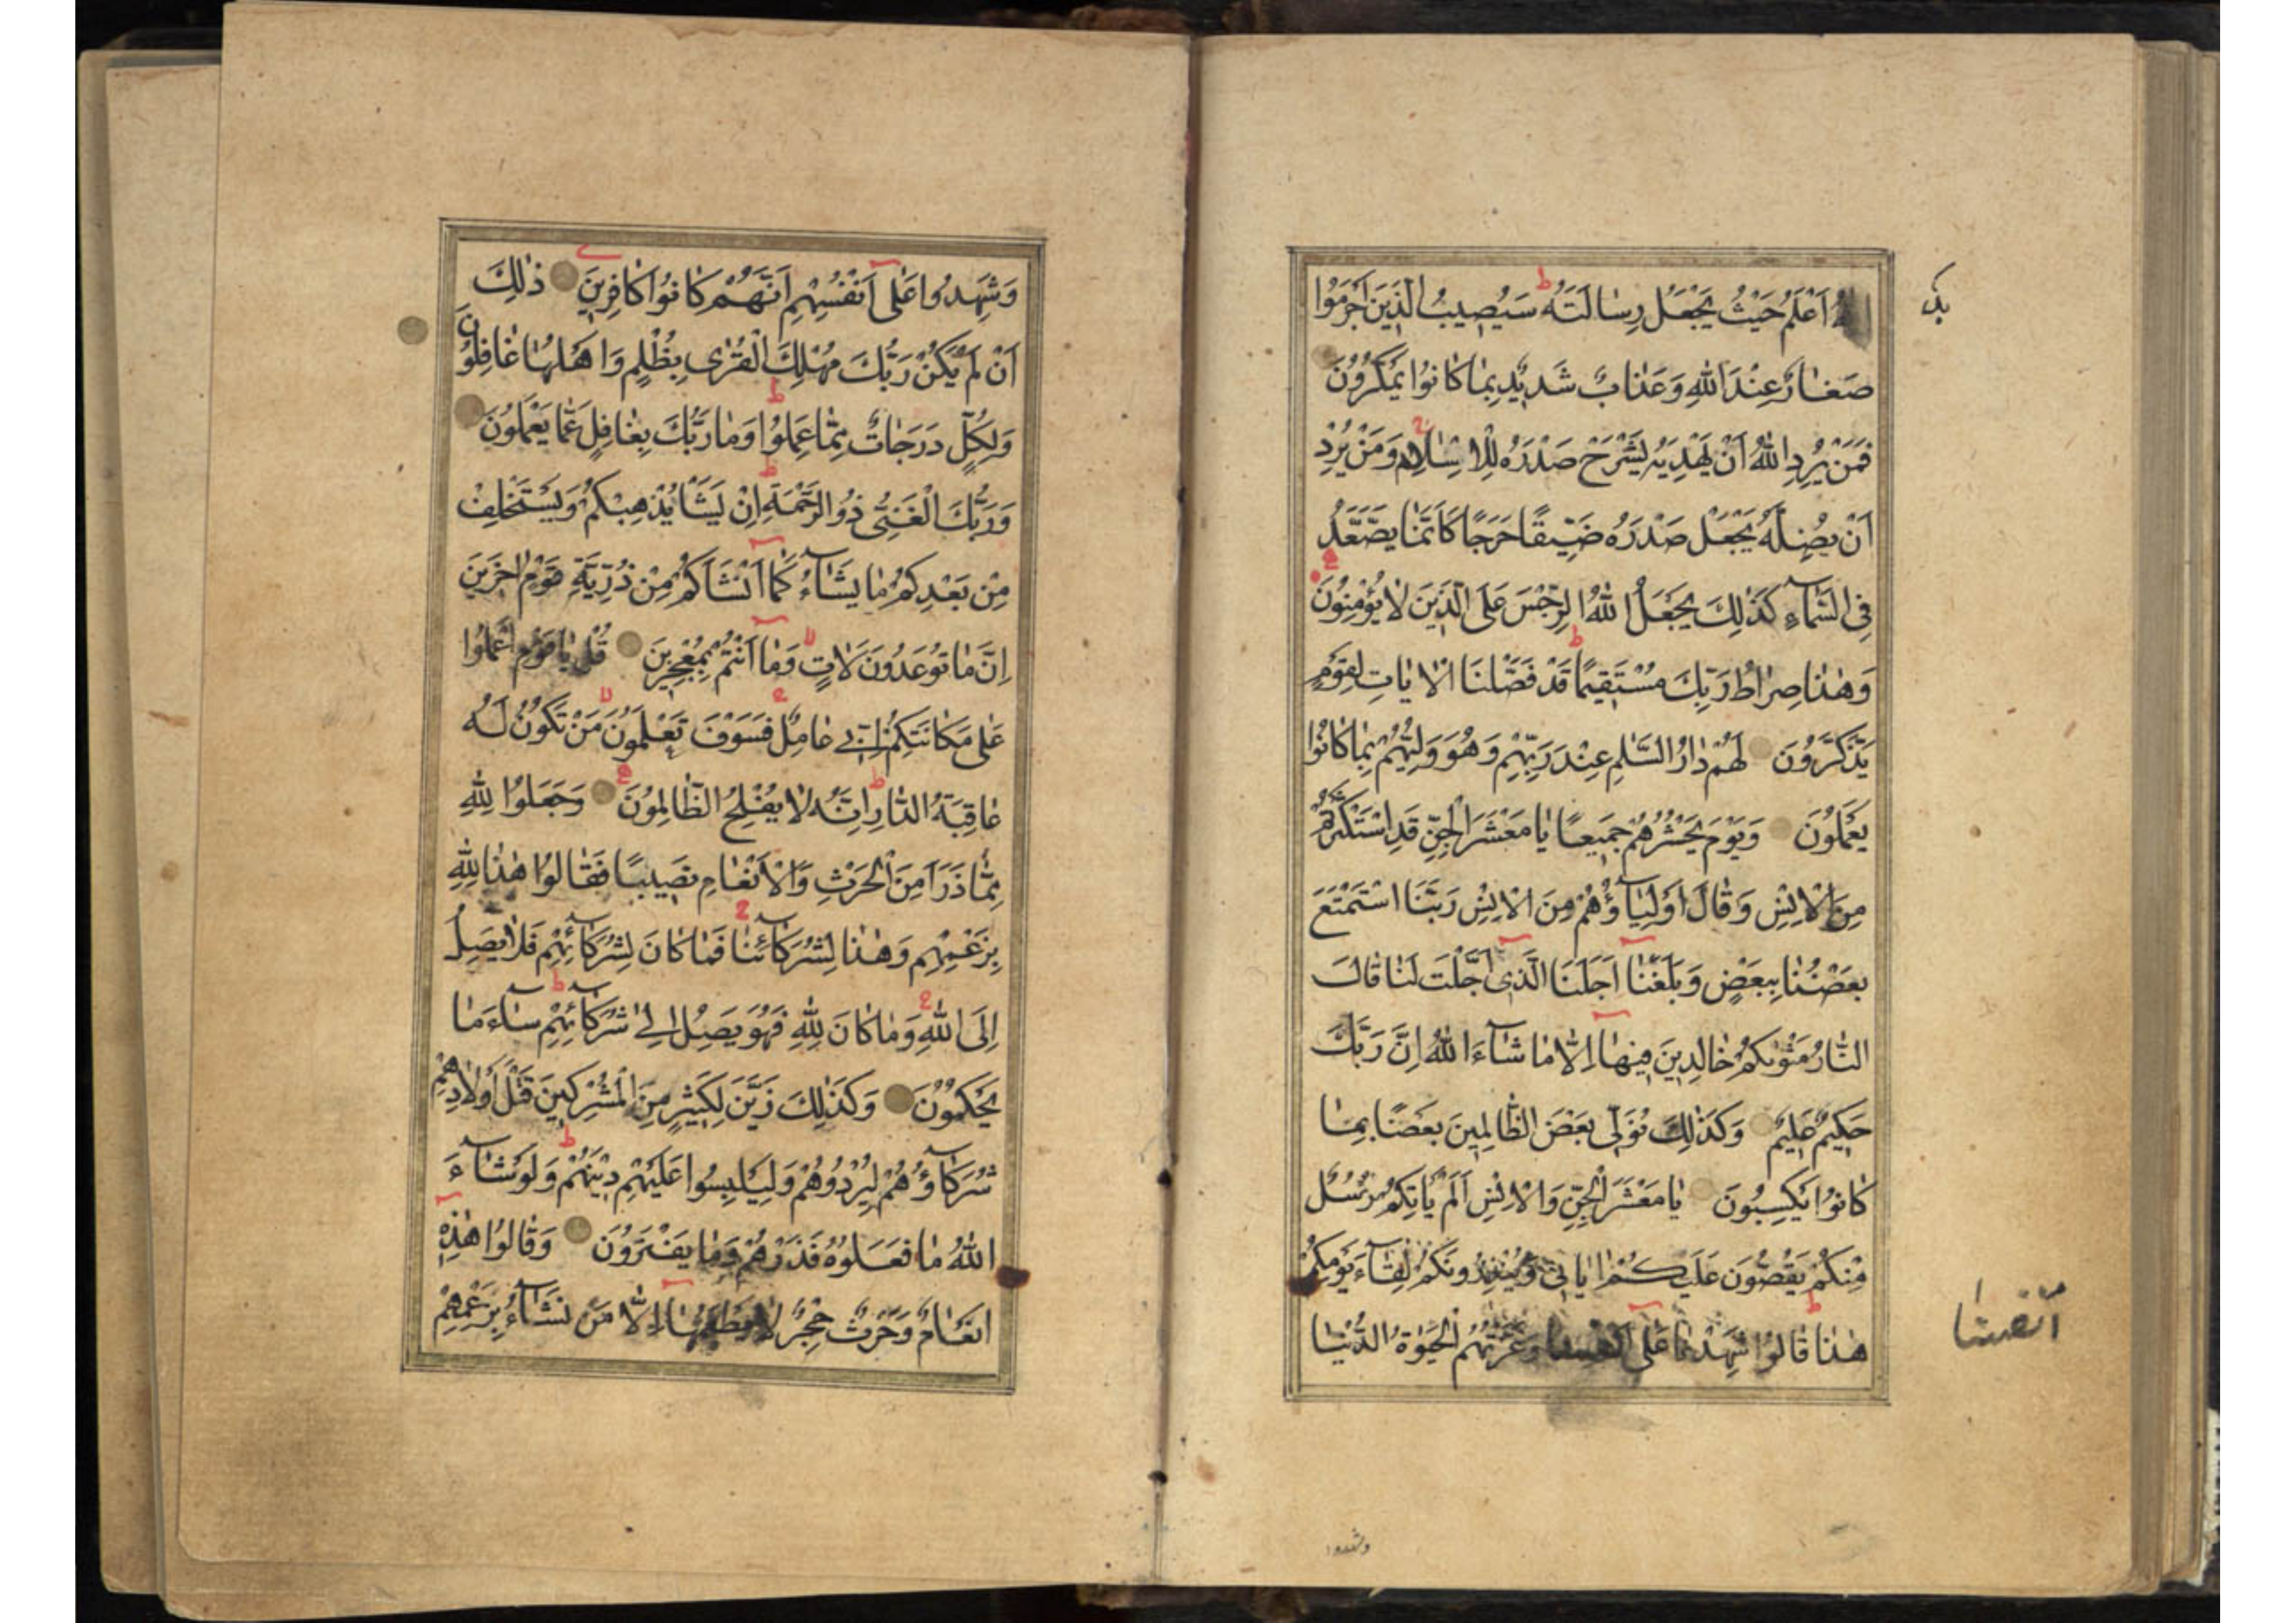 اللهُ اَعْلَمُ حَيْثُ يَجْعَلُ رِسَالَتَهُ سَيُصِيبُ الَّذِينَ اَجْرَمُوا
صَغَارٌ عِنْدَ اللهِ وَعَذَابٌ شَدِيدٌ بِمَا كَانُوا يَمْكُرُونَ
فَمَنْ يُرِدِ اللهُ اَنْ يَهْدِيَهُ يَشْرَحْ صَدْرَهُ لِلْاِسْلَامِ وَمَنْ يُرِدْ
اَنْ يُضِلَّهُ يَجْعَلْ صَدْرَهُ ضَيِّقًا حَرَجًا كَاَنَّمَا يَصَّعَّدُ
فِي السَّمَآءِ كَذَلِكَ يَجْعَلُ اللهُ الرِّجْسَ عَلَى الَّذِينَ لَا يُؤْمِنُونَ
وَهٰذَا صِرَاطُ رَبِّكَ مُسْتَقِيمًا قَدْ فَصَّلْنَا الْاٰيَاتِ لِقَوْمٍ
يَذَّكَّرُونَ لَهُمْ دَارُ السَّلٰمِ عِنْدَ رَبِّهِمْ وَهُوَ وَلِيُّهُمْ بِمَا كَانُوا
يَعْمَلُونَ وَيَوْمَ يَحْشُرُهُمْ جَمِيعًا يَا مَعْشَرَ الْجِنِّ قَدِ اسْتَكْثَرْتُمْ
مِنَ الْاِنْسِ وَقَالَ اَوْلِيَآؤُهُمْ مِنَ الْاِنْسِ رَبَّنَا اسْتَمْتَعَ
بَعْضُنَا بِبَعْضٍ وَبَلَغْنَا اَجَلَنَا الَّذِي اَجَّلْتَ لَنَا قَالَ
النَّارُ مَثْوٰيكُمْ خَالِدِينَ فِيهَا اِلَّا مَا شَآءَ اللهُ اِنَّ رَبَّكَ
حَكِيمٌ عَلِيمٌ وَكَذٰلِكَ نُوَلِّي بَعْضَ الظَّالِمِينَ بَعْضًا بِمَا
كَانُوا يَكْسِبُونَ يَا مَعْشَرَ الْجِنِّ وَالْاِنْسِ اَلَمْ يَاْتِكُمْ رُسُلٌ
مِنْكُمْ يَقُصُّونَ عَلَيْكُمْ اٰيَاتِي وَيُنْذِرُونَكُمْ لِقَآءَ يَوْمِكُمْ
هٰذَا قَالُوا شَهِدْنَا عَلٰى اَنْفُسِنَا وَغَرَّتْهُمُ الْحَيٰوةُ الدُّنْيَا
انفسنا
وشهدوا
وَشَهِدُوا عَلٰى اَنْفُسِهِمْ اَنَّهُمْ كَانُوا كَافِرِينَ ذٰلِكَ
اَنْ لَمْ يَكُنْ رَبُّكَ مُهْلِكَ الْقُرٰى بِظُلْمٍ وَاَهْلُهَا غَافِلُونَ
وَلِكُلٍّ دَرَجَاتٌ مِمَّا عَمِلُوا وَمَا رَبُّكَ بِغَافِلٍ عَمَّا يَعْمَلُونَ
وَرَبُّكَ الْغَنِيُّ ذُو الرَّحْمَةِ اِنْ يَشَاْ يُذْهِبْكُمْ وَيَسْتَخْلِفْ
مِنْ بَعْدِكُمْ مَا يَشَآءُ كَمَا اَنْشَاَكُمْ مِنْ ذُرِّيَّةِ قَوْمٍ اٰخَرِينَ
اِنَّ مَا تُوعَدُونَ لَاٰتٍ وَمَا اَنْتُمْ بِمُعْجِزِينَ قُلْ يَا قَوْمِ اعْمَلُوا
عَلٰى مَكَانَتِكُمْ اِنِّي عَامِلٌ فَسَوْفَ تَعْلَمُونَ مَنْ تَكُونُ لَهُ
عَاقِبَةُ الدَّارِ اِنَّهُ لَا يُفْلِحُ الظَّالِمُونَ وَجَعَلُوا لِلّٰهِ
مِمَّا ذَرَاَ مِنَ الْحَرْثِ وَالْاَنْعَامِ نَصِيبًا فَقَالُوا هٰذَا لِلّٰهِ
بِزَعْمِهِمْ وَهٰذَا لِشُرَكَآئِنَا فَمَا كَانَ لِشُرَكَآئِهِمْ فَلَا يَصِلُ
اِلَى اللهِ وَمَا كَانَ لِلّٰهِ فَهُوَ يَصِلُ اِلٰى شُرَكَآئِهِمْ سَآءَ مَا
يَحْكُمُونَ وَكَذٰلِكَ زَيَّنَ لِكَثِيرٍ مِنَ الْمُشْرِكِينَ قَتْلَ اَوْلَادِهِمْ
شُرَكَآؤُهُمْ لِيُرْدُوهُمْ وَلِيَلْبِسُوا عَلَيْهِمْ دِينَهُمْ وَلَوْ شَآءَ
اللهُ مَا فَعَلُوهُ فَذَرْهُمْ وَمَا يَفْتَرُونَ وَقَالُوا هٰذِهِ
اَنْعَامٌ وَحَرْثٌ حِجْرٌ لَا يَطْعَمُهَا اِلَّا مَنْ نَشَآءُ بِزَعْمِهِمْ